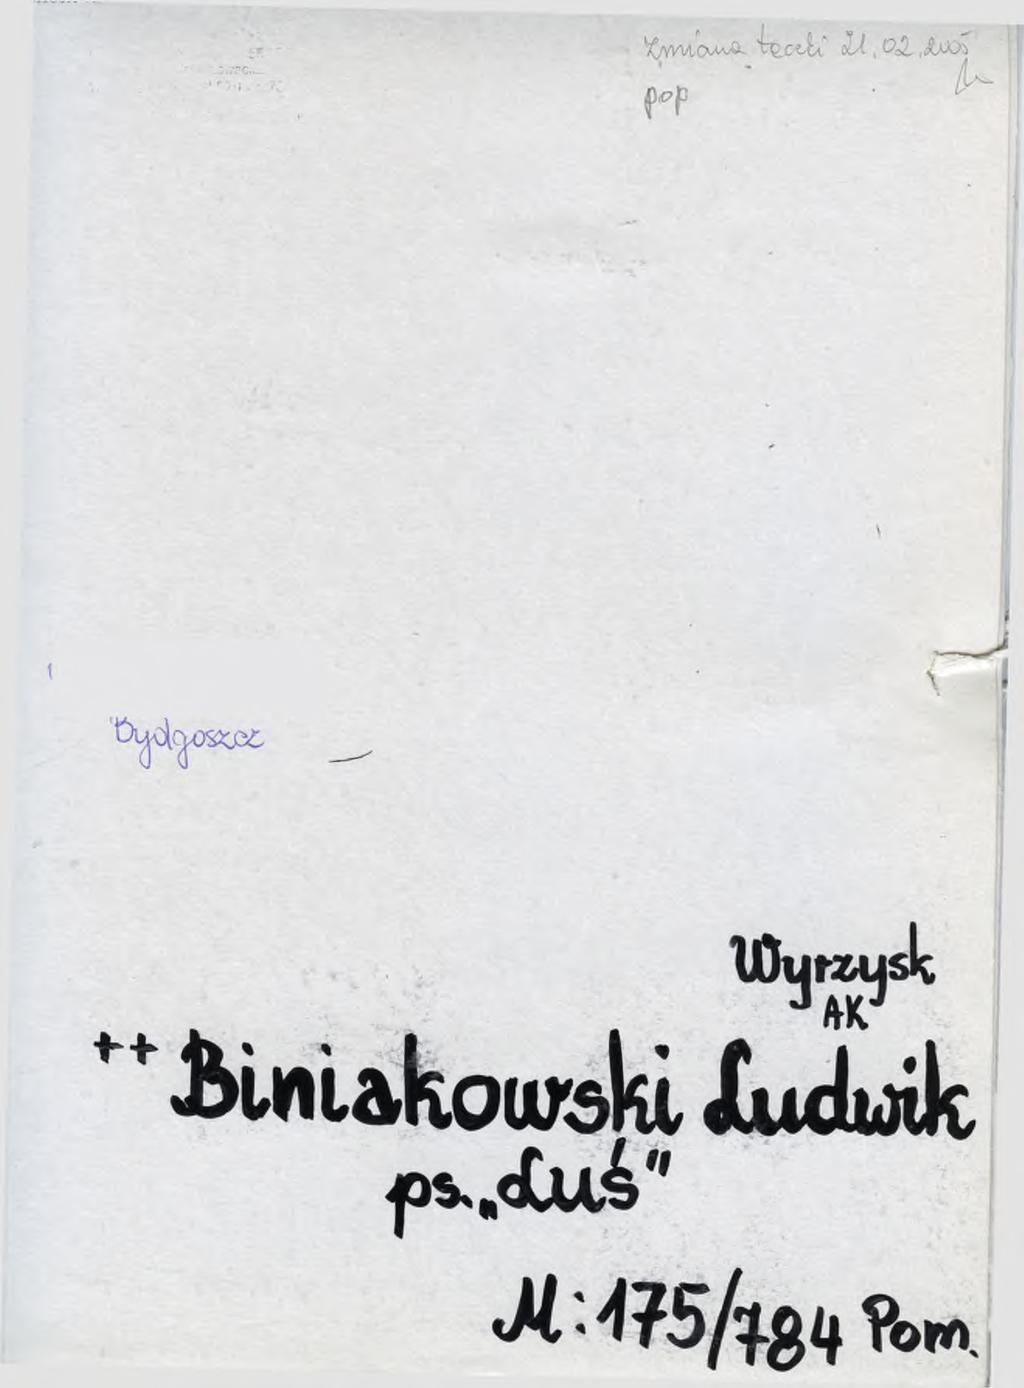 Zmiana teczki 21.02.2005
pop
Bydgoszcz
Wyrzysk
AK
++ Biniakowski Ludwik
ps. „Luś"
M:175/784 Pom.